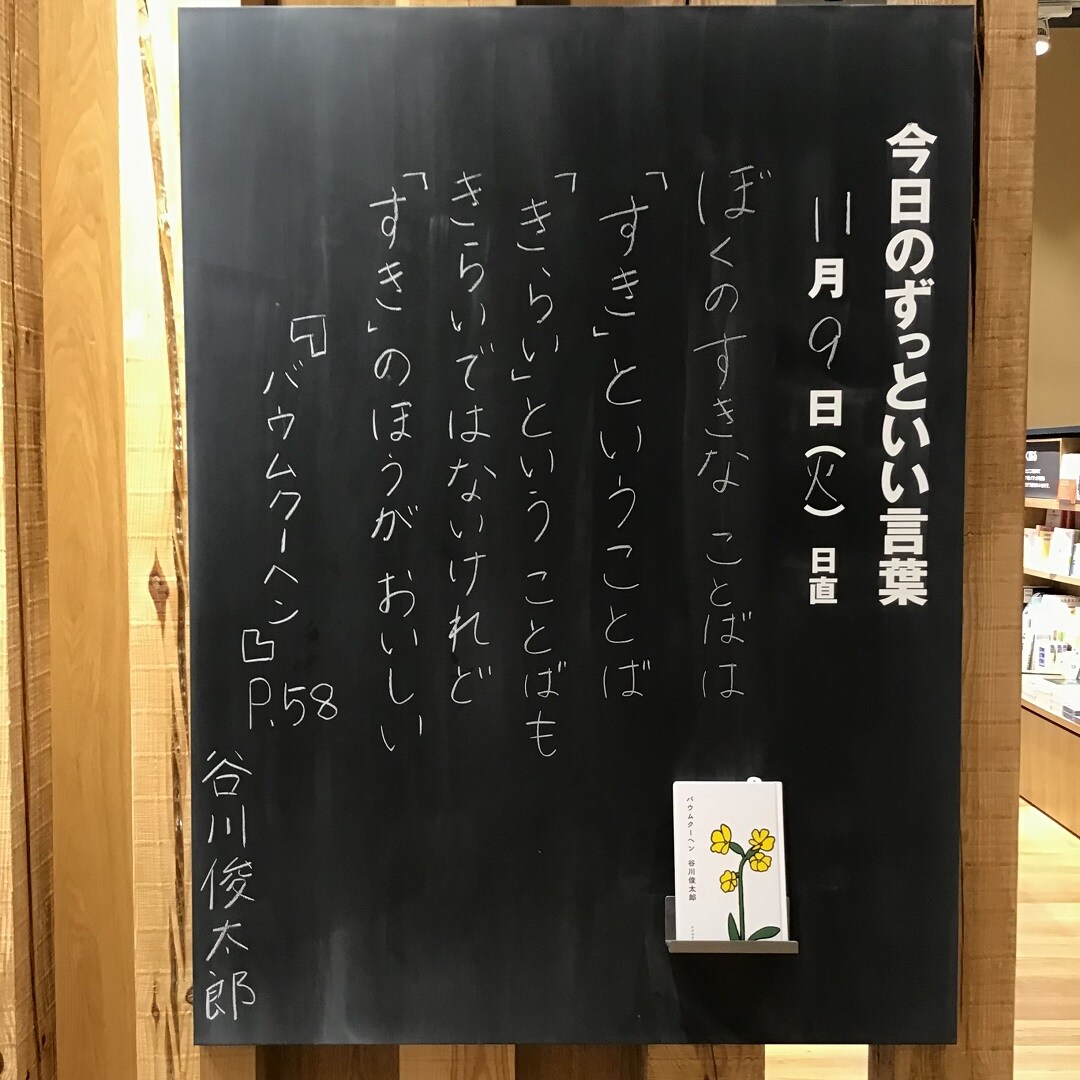 今日のずっといい言葉
11月9日(火) 日直
ぼくのすきな ことばは
「すき」ということば
「きらい」という ことばも
きらいではないけれど
「すき」のほうが おいしい
『バウムクーヘン』P.58
谷川俊太郎
バウムクーヘン 谷川俊太郎